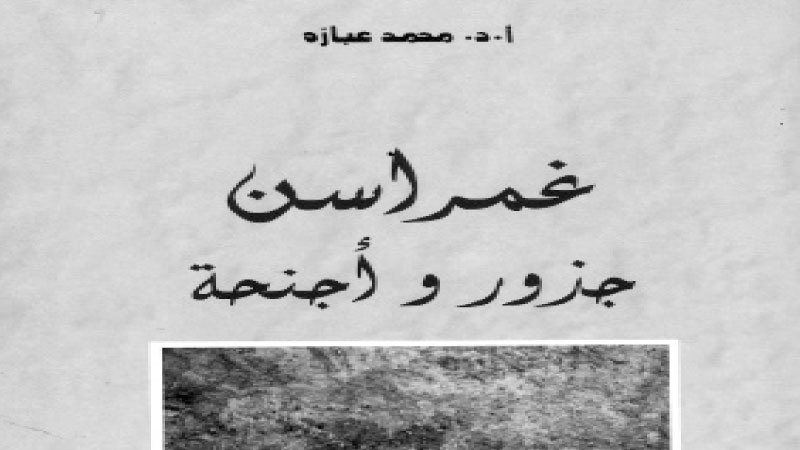 أ.د. محمد عبازه
غمراسن
جذور و أجنحة